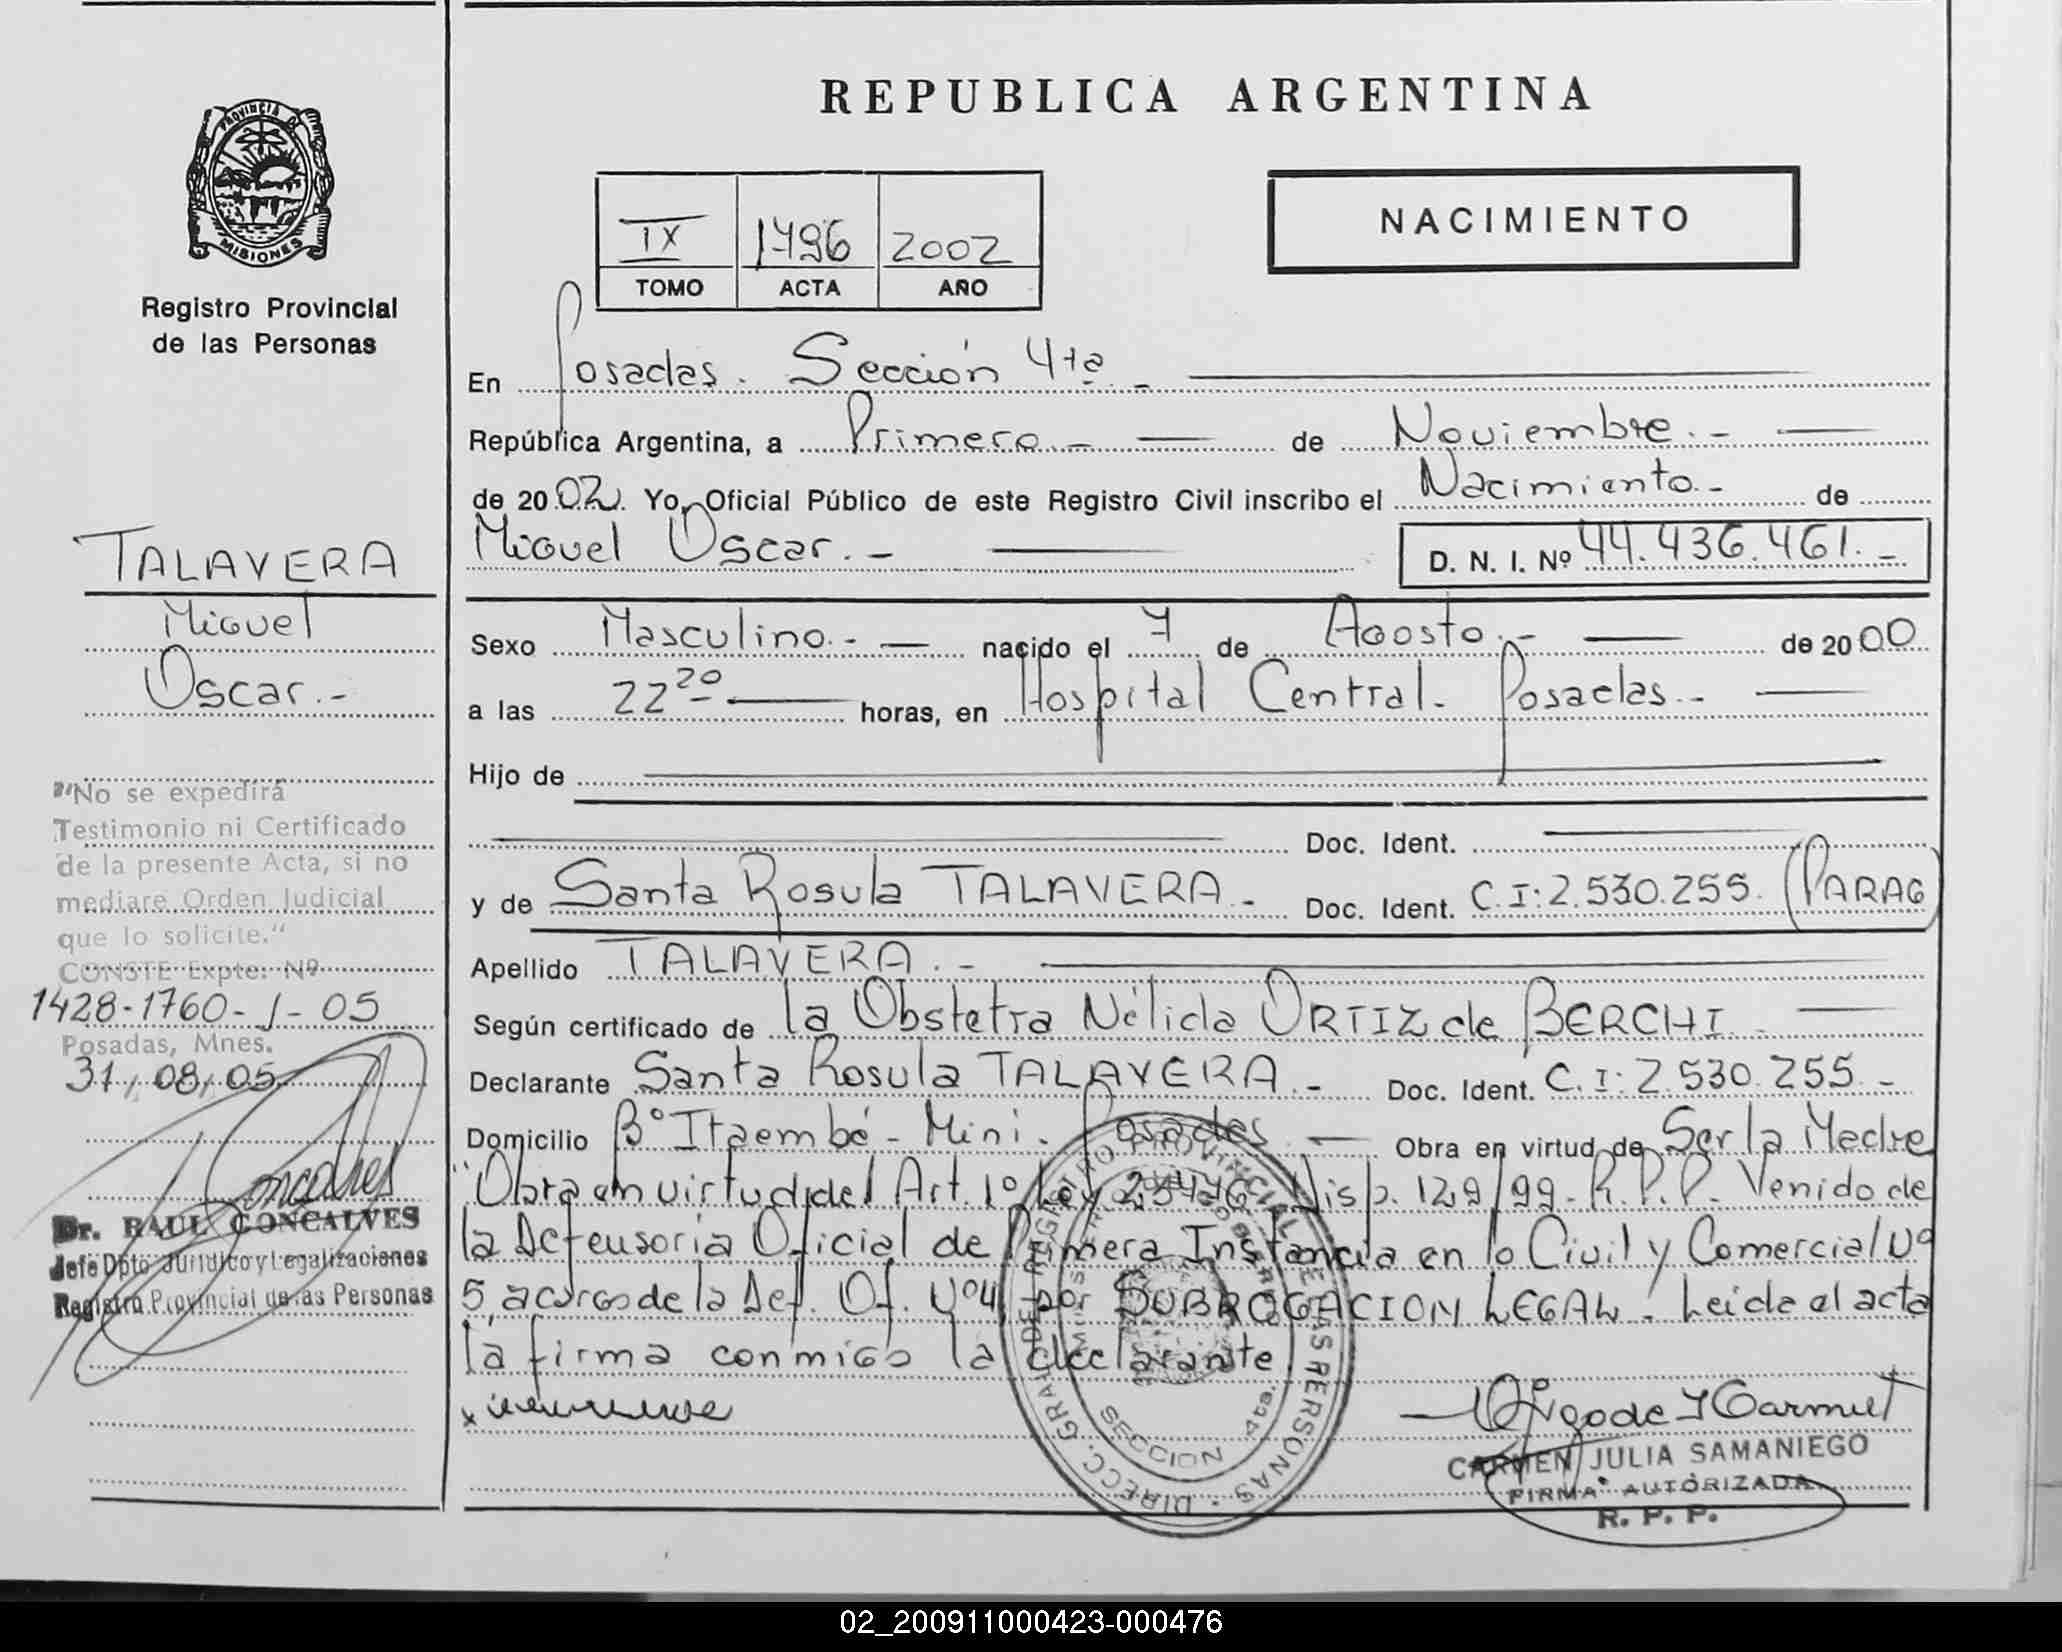 REPUBLICA ARGENTINA
PROVINCIA DE
MISIONES
Registro Provincial
de las Personas
IX 1496 2002
TOMO ACTA AÑO
NACIMIENTO
En Posadas. Sección 4ta. -
República Argentina, a Primero. - de Noviembre. -
de 20 02. Yo, Oficial Público de este Registro Civil inscribo el Nacimiento. - de
Miguel Oscar. -
D. N. I. Nº 44.436.461. -
Sexo Masculino. - nacido el 7 de Agosto. - de 20 00
a las 22 20 horas, en Hospital Central - Posadas. -
Hijo de
Doc. Ident.
y de Santa Rosula TALAVERA. - Doc. Ident. C.I: 2.530.255. (PARAG
Apellido TALAVERA. -
Según certificado de la Obstetra Nélida ORTIZ de BERCHI. -
Declarante Santa Rosula TALAVERA. - Doc. Ident. C.I: 2.530.255. -
Domicilio Bº Itaembé - Mini. Posadas. Obra en virtud de Ser la Madre
"Obra en virtud del Art. 1º Ley Disp. 129/99 - R.P.P. Venido de
la Defensoria Oficial de Primera Instancia en lo Civil y Comercial Nº
5 a cargo de la Def. Of. Nº4 por SUBROGACION LEGAL - Leida el acta
la firma conmigo la declarante
CARMEN JULIA SAMANIEGO
FIRMA AUTORIZADA
R. P. P.
DIRECC. GRAL. DE REGISTRO PROVINCIAL DE LAS PERSONAS
MISIONES
SECCION 4ta.
TALAVERA
Miguel
Oscar. -
"No se expedirá
Testimonio ni Certificado
de la presente Acta, si no
mediare Orden Judicial
que lo solicite."
CONSTE Expte: Nº
1428-1760-J-05
Posadas, Mnes.
31/08/05
Dr. RAUL GONCALVES
Jefe Dpto Jurídico y Legalizaciones
Registro Provincial de las Personas
02_200911000423-000476